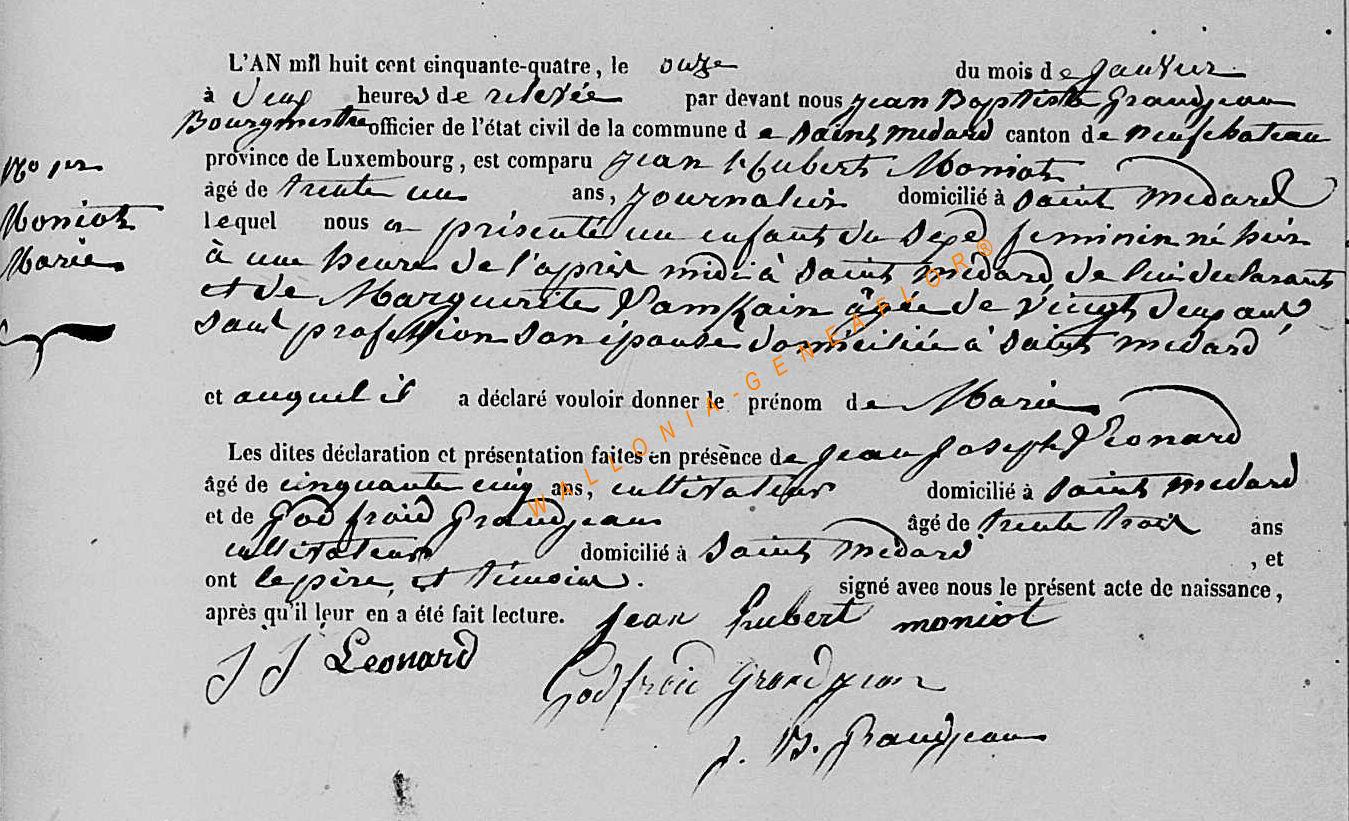 L'AN mil huit cent cinquante-quatre, le onze du mois de Janvier
à deux heures de relevée par devant nous Jean Baptiste Grandjean
Bourgmestre officier de l'état civil de la commune de Saint Medard canton de Neufchateau
province de Luxembourg, est comparu Jean Hubert Moniot
âgé de trente un ans, journalier domicilié à Saint Medard
lequel nous a présenté un enfant du sexe feminin né hier
à une heure de l'après midi à Saint Medard de lui declarant
et de Marguerite âgée de vingt deux ans
sans profession son épouse domiciliée à Saint Medard
et auquel il a déclaré vouloir donner le prénom de Marie
Les dites déclaration et présentation faites en présence de Jean Joseph Leonard
âgé de cinquante cinq ans, cultivateur domicilié à Saint Medard
et de Godfroid Grandjean âgé de trente trois ans
cultivateur domicilié à Saint Medard, et
ont le père, et témoins. signé avec nous le présent acte de naissance,
après qu'il leur en a été fait lecture. Jean hubert moniot
J J Leonard
Godfroid Grandjean
J. B. Grandjean
No 1er
Moniot
Marie
WALLONIA-GENEAFLOR®